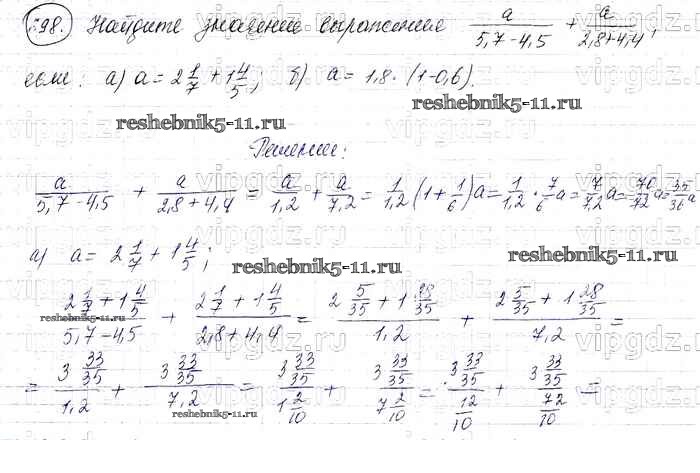 598. Найдите значение выражения a/(5,7-4,5) + a/(2,8+4,4),
если: а) a = 2 1/7 + 1 4/5; б) a = 1,8 · (1-0,6).
reshebnik5-11.ru
reshebnik5-11.ru
Решение:
a/(5,7-4,5) + a/(2,8+4,4) = a/1,2 + a/7,2 = 1/1,2 (1+1/6)a = 1/1,2 · 7/6 a = 7/7,2 a = 70/72 a = 35/36 a
а) a = 2 1/7 + 1 4/5;
reshebnik5-11.ru
reshebnik5-11.ru
(2 1/7 + 1 4/5)/(5,7-4,5) + (2 1/7 + 1 4/5)/(2,8+4,4) = (2 5/35 + 1 28/35)/1,2 + (2 5/35 + 1 28/35)/7,2 =
reshebnik5-11.ru
= (3 33/35)/1,2 + (3 33/35)/7,2 = (3 33/35)/(1 2/10) + (3 33/35)/(7 2/10) = (3 33/35)/(12/10) + (3 33/35)/(72/10) =
reshebnik5-11.ru